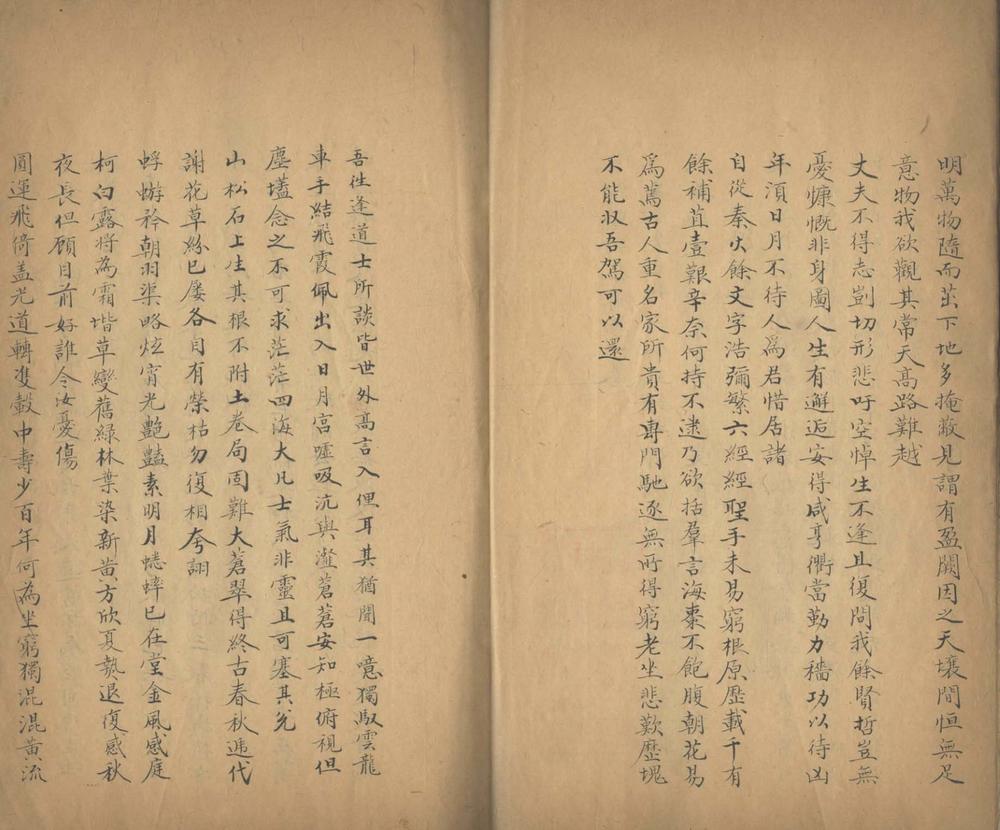 明萬物隨而茁下地多掩蔽見謂有盈闕因之天壤間恒無足
意物我欲觀其常天高路難越
丈夫不得志剴切形悲吁空悼生不逢且復問我餘賢哲豈無
憂慷慨非身圖人生有邂逅安得咸亨衢當勤力穡功以待凶
年湏日月不待人爲君惜居諸
自從秦火餘文字浩彌繁六經經聖手未易窮根原歷載千有
餘補苴壹艱辛奈何持不逮乃欲括羣言海棗不飽腹朝花易
爲蔫古人重名家所貴有專門馳逐無所得窮老坐悲歎歷塊
不能収吾駕可以還
吾徃逢道士所談皆世外高言入俚耳其猶聞一噫獨馭雲龍
車手結飛霞佩出入日月宮噓吸沆與瀣蒼蒼安知極俯視但
塵壒念之不可求茫茫四海大凡士氣非靈且可塞其兊
山松石上生其根不附土卷局固難大蒼翠得終古春秋逓代
謝花草紛已屢各自有榮枯勿復相夸詡
蜉蝣矜朝羽渠略炫宵光艷豔素明月蟋蟀已在堂金風感庭
柯白露將為霜堦草變舊綠林葉染新黃方欣夏𤍠退復感秋
夜長但顧目前好誰令汝憂傷
圓運飛倚盖光道轉隻轂中壽少百年何為坐窮獨混混黃流